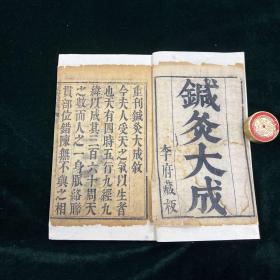 鍼灸大成
李府藏板
重刊鍼灸大成敘
今夫人受天之氣以生者
也天有四時五行九經九
緯以成其三百六十周天
之數而人之一身脈絡聯
貫部位錯陳無不與之相